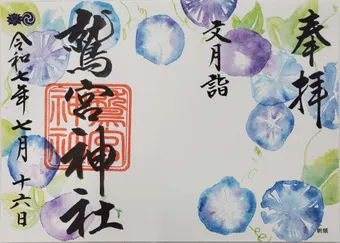 奉拝
文月詣
鷲宮神社
鷲宮神社
令和七年 七月 十六日